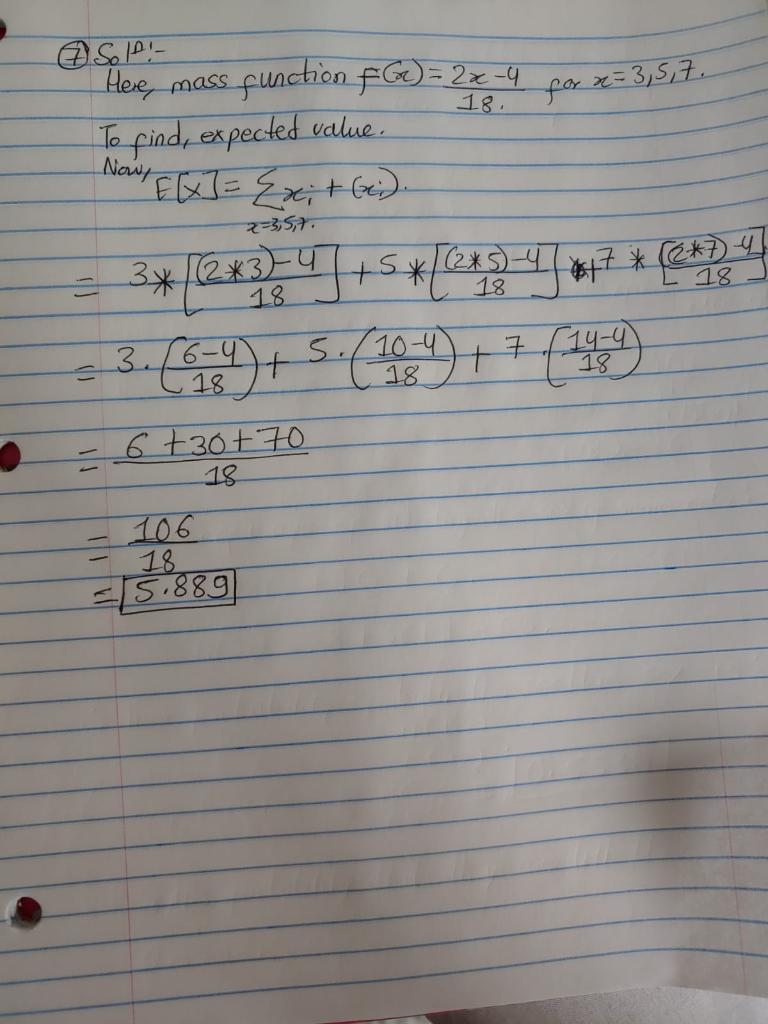 ⑦ Solⁿ:-
Here, mass function f(x) = 2x-4/18. for x=3,5,7.
To find, expected value.
Now,
E[X] = Σ xᵢ + (xᵢ).
x=3,5,7.
= 3*[(2*3)-4/18] + 5*[(2*5)-4/18] + 7*[(2*7)-4/18]
= 3.(6-4/18) + 5.(10-4/18) + 7.(14-4/18)
= 6+30+70/18
= 106/18
= 5.889